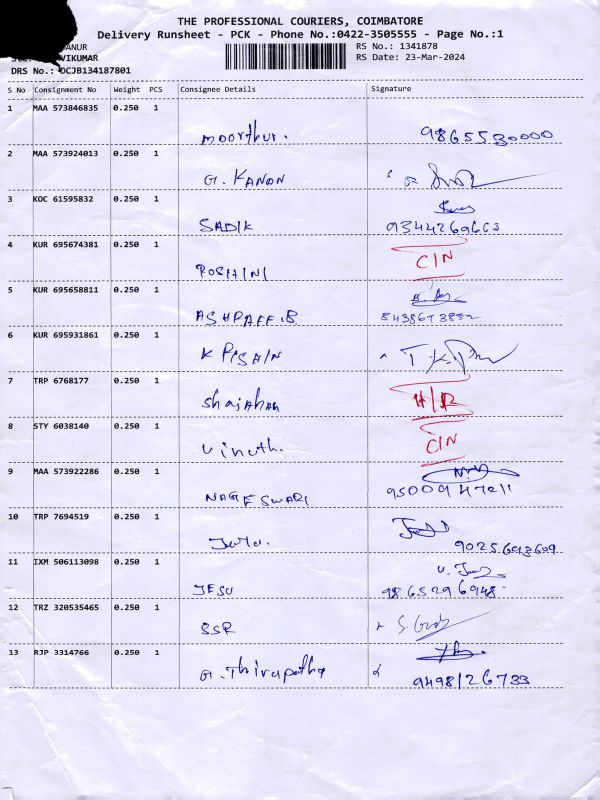 THE PROFESSIONAL COURIERS, COIMBATORE
Delivery Runsheet - PCK - Phone No.:0422-3505555 - Page No.:1
RS No.: 1341878
RS Date: 23-Mar-2024
DRS No.: DCJB134187801
S No Consignment No Weight PCS Consignee Details Signature
1 MAA 573846835 0.250 1
moorthur. 9865530000
2 MAA 573924013 0.250 1
G. KANAN
3 KOC 61595832 0.250 1
SADIK 9344269663
4 KUR 695674381 0.250 1
ROSHINI C/N
5 KUR 695658811 0.250 1
ASHRAFF.B 8438673882
6 KUR 695931861 0.250 1
K
7 TRP 6768177 0.250 1
Shajahan H/R
8 STY 6038140 0.250 1
Vinuth. C/N
9 MAA 573922286 0.250 1
NAGESWARI
10 TRP 7694519 0.250 1
9025693609
11 IXM 506113098 0.250 1
JESU 9865296948
12 TRZ 320535465 0.250 1
SSR
13 RJP 3314766 0.250 1
G. Thirupatha 9498126733